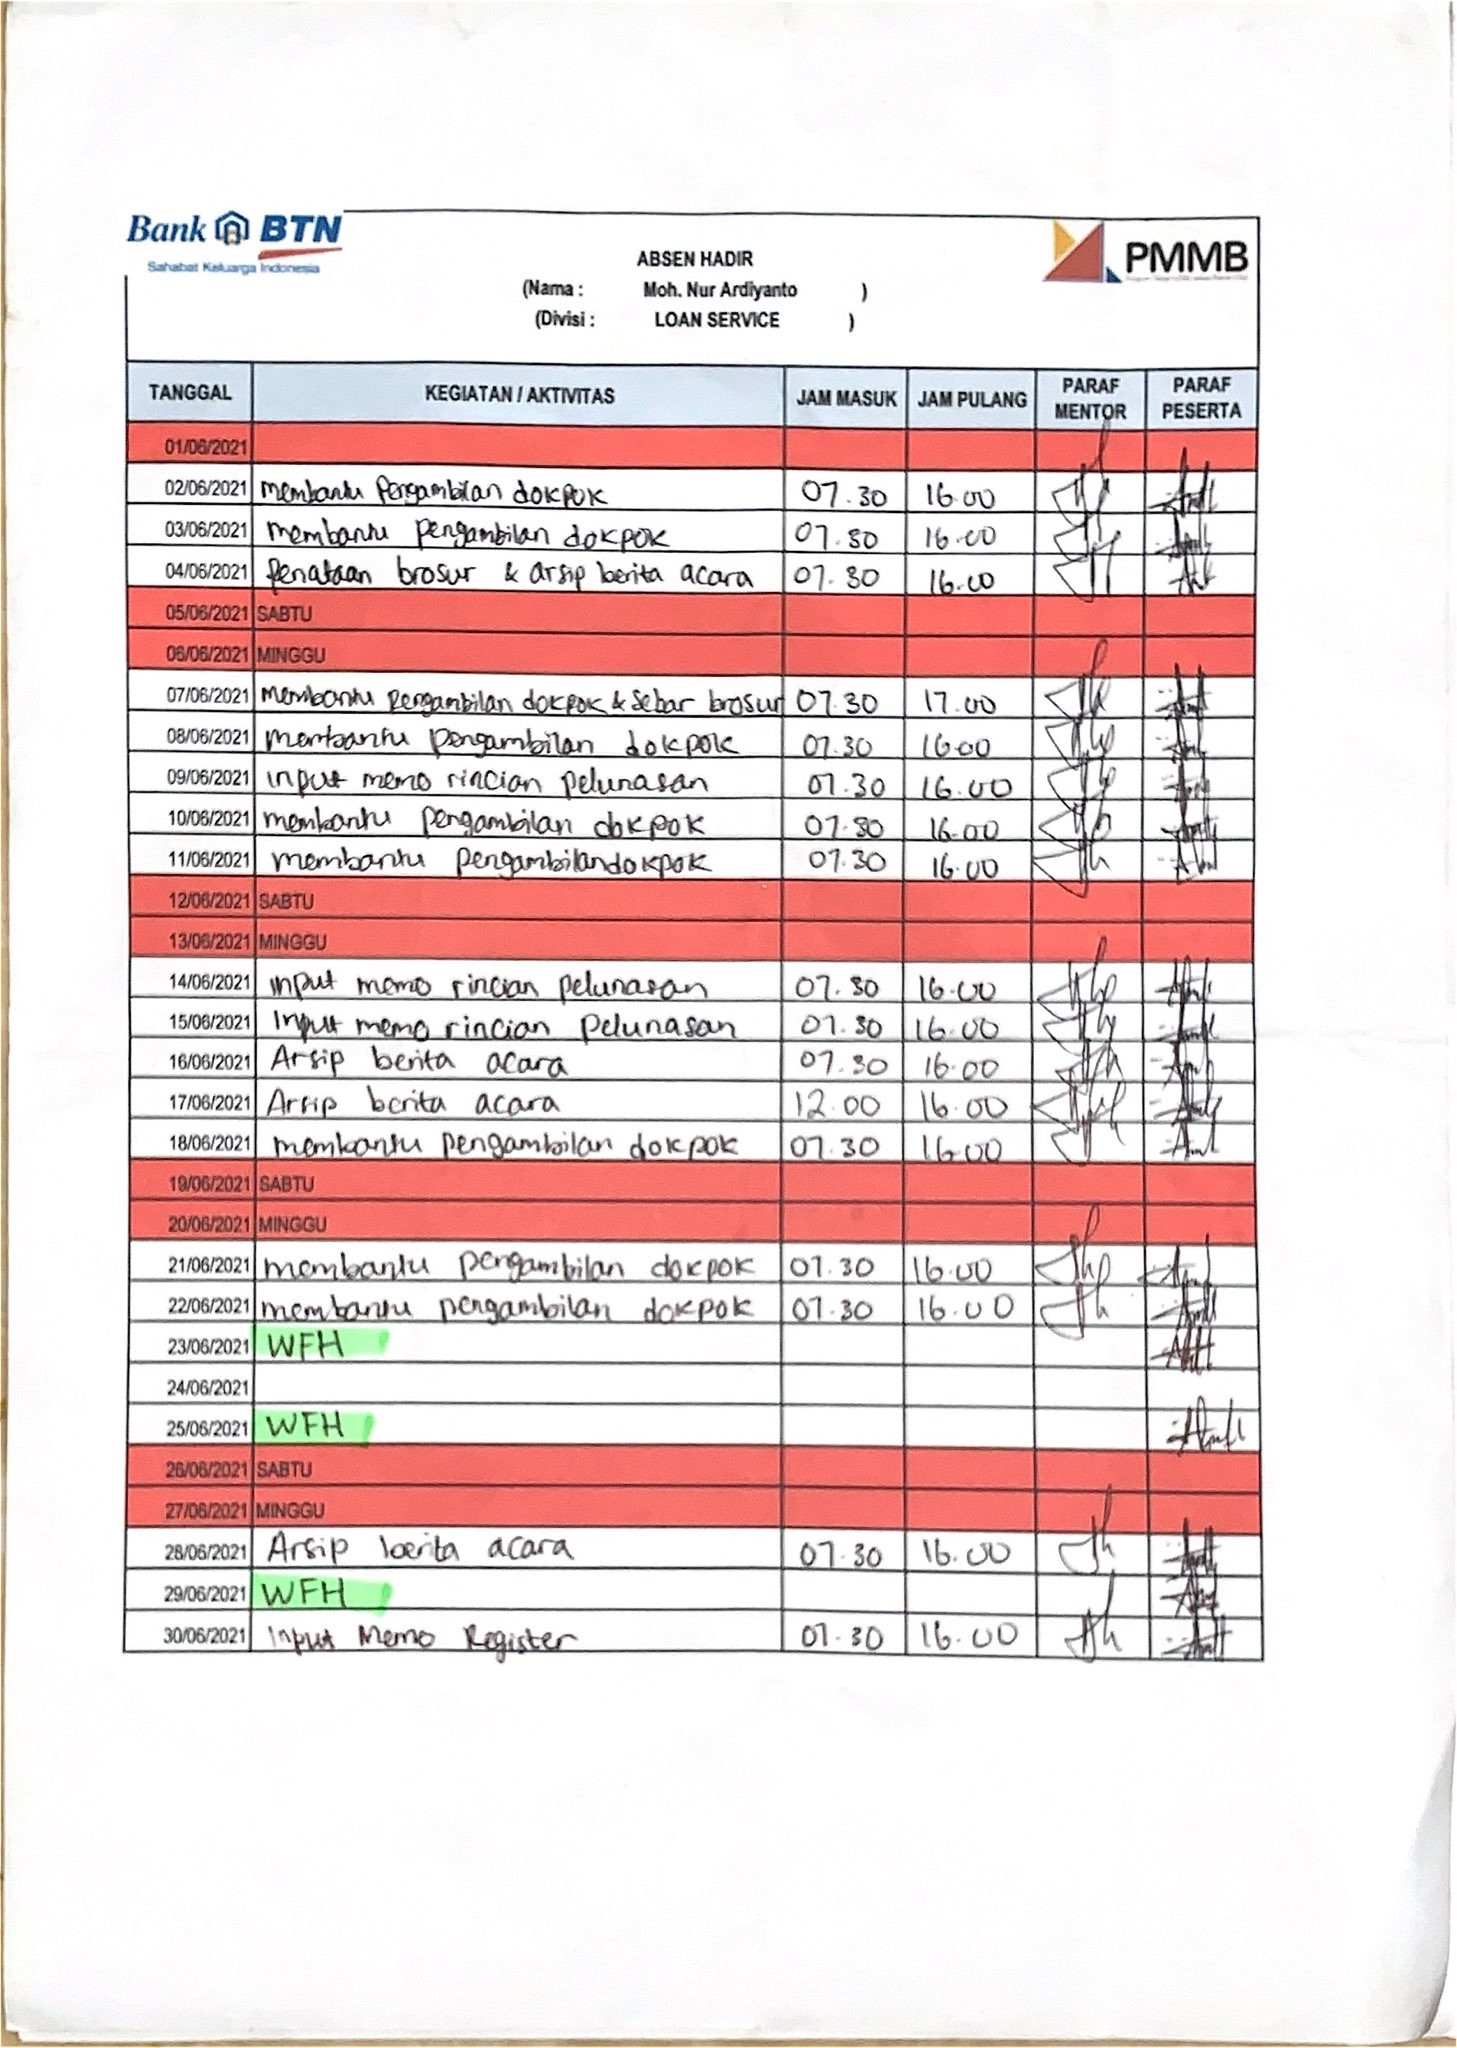 Bank BTN
Sahabat Keluarga Indonesia
PMMB
ABSEN HADIR
(Nama : Moh. Nur Ardiyanto )
(Divisi : LOAN SERVICE )
TANGGAL KEGIATAN / AKTIVITAS JAM MASUK JAM PULANG PARAF MENTOR PARAF PESERTA
01/06/2021
02/06/2021 membantu pengambilan dokpok 07.30 16.00
03/06/2021 membantu pengambilan dokpok 07.30 16.00
04/06/2021 penataan brosur & arsip berita acara 07.30 16.00
05/06/2021 SABTU
06/06/2021 MINGGU
07/06/2021 membantu pengambilan dokpok & sebar brosur 07.30 17.00
08/06/2021 membantu pengambilan dokpok 07.30 16.00
09/06/2021 input memo rincian pelunasan 07.30 16.00
10/06/2021 membantu pengambilan dokpok 07.30 16.00
11/06/2021 membantu pengambilan dokpok 07.30 16.00
12/06/2021 SABTU
13/06/2021 MINGGU
14/06/2021 input memo rincian pelunasan 07.30 16.00
15/06/2021 Input memo rincian pelunasan 07.30 16.00
16/06/2021 Arsip berita acara 07.30 16.00
17/06/2021 Arsip berita acara 12.00 16.00
18/06/2021 membantu pengambilan dokpok 07.30 16.00
19/06/2021 SABTU
20/06/2021 MINGGU
21/06/2021 membantu pengambilan dokpok 07.30 16.00
22/06/2021 membantu pengambilan dokpok 07.30 16.00
23/06/2021 WFH
24/06/2021
25/06/2021 WFH
26/06/2021 SABTU
27/06/2021 MINGGU
28/06/2021 Arsip berita acara 07.30 16.00
29/06/2021 WFH
30/06/2021 Input Memo Register 07.30 16.00